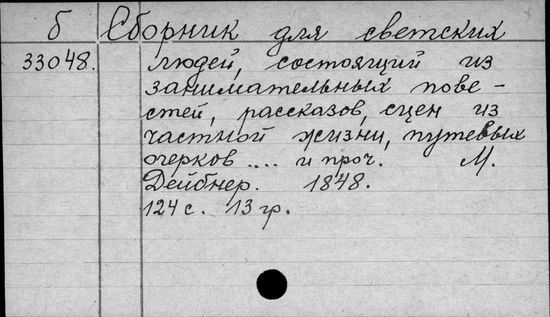 б Сборник для светских
33048. людей, состоящий из
занимательных пове-
стей, рассказов, сцен из
частной жизни, путевых
очерков .... и проч. М.
Дейбнер. 1848.
124 с. 13 гр.